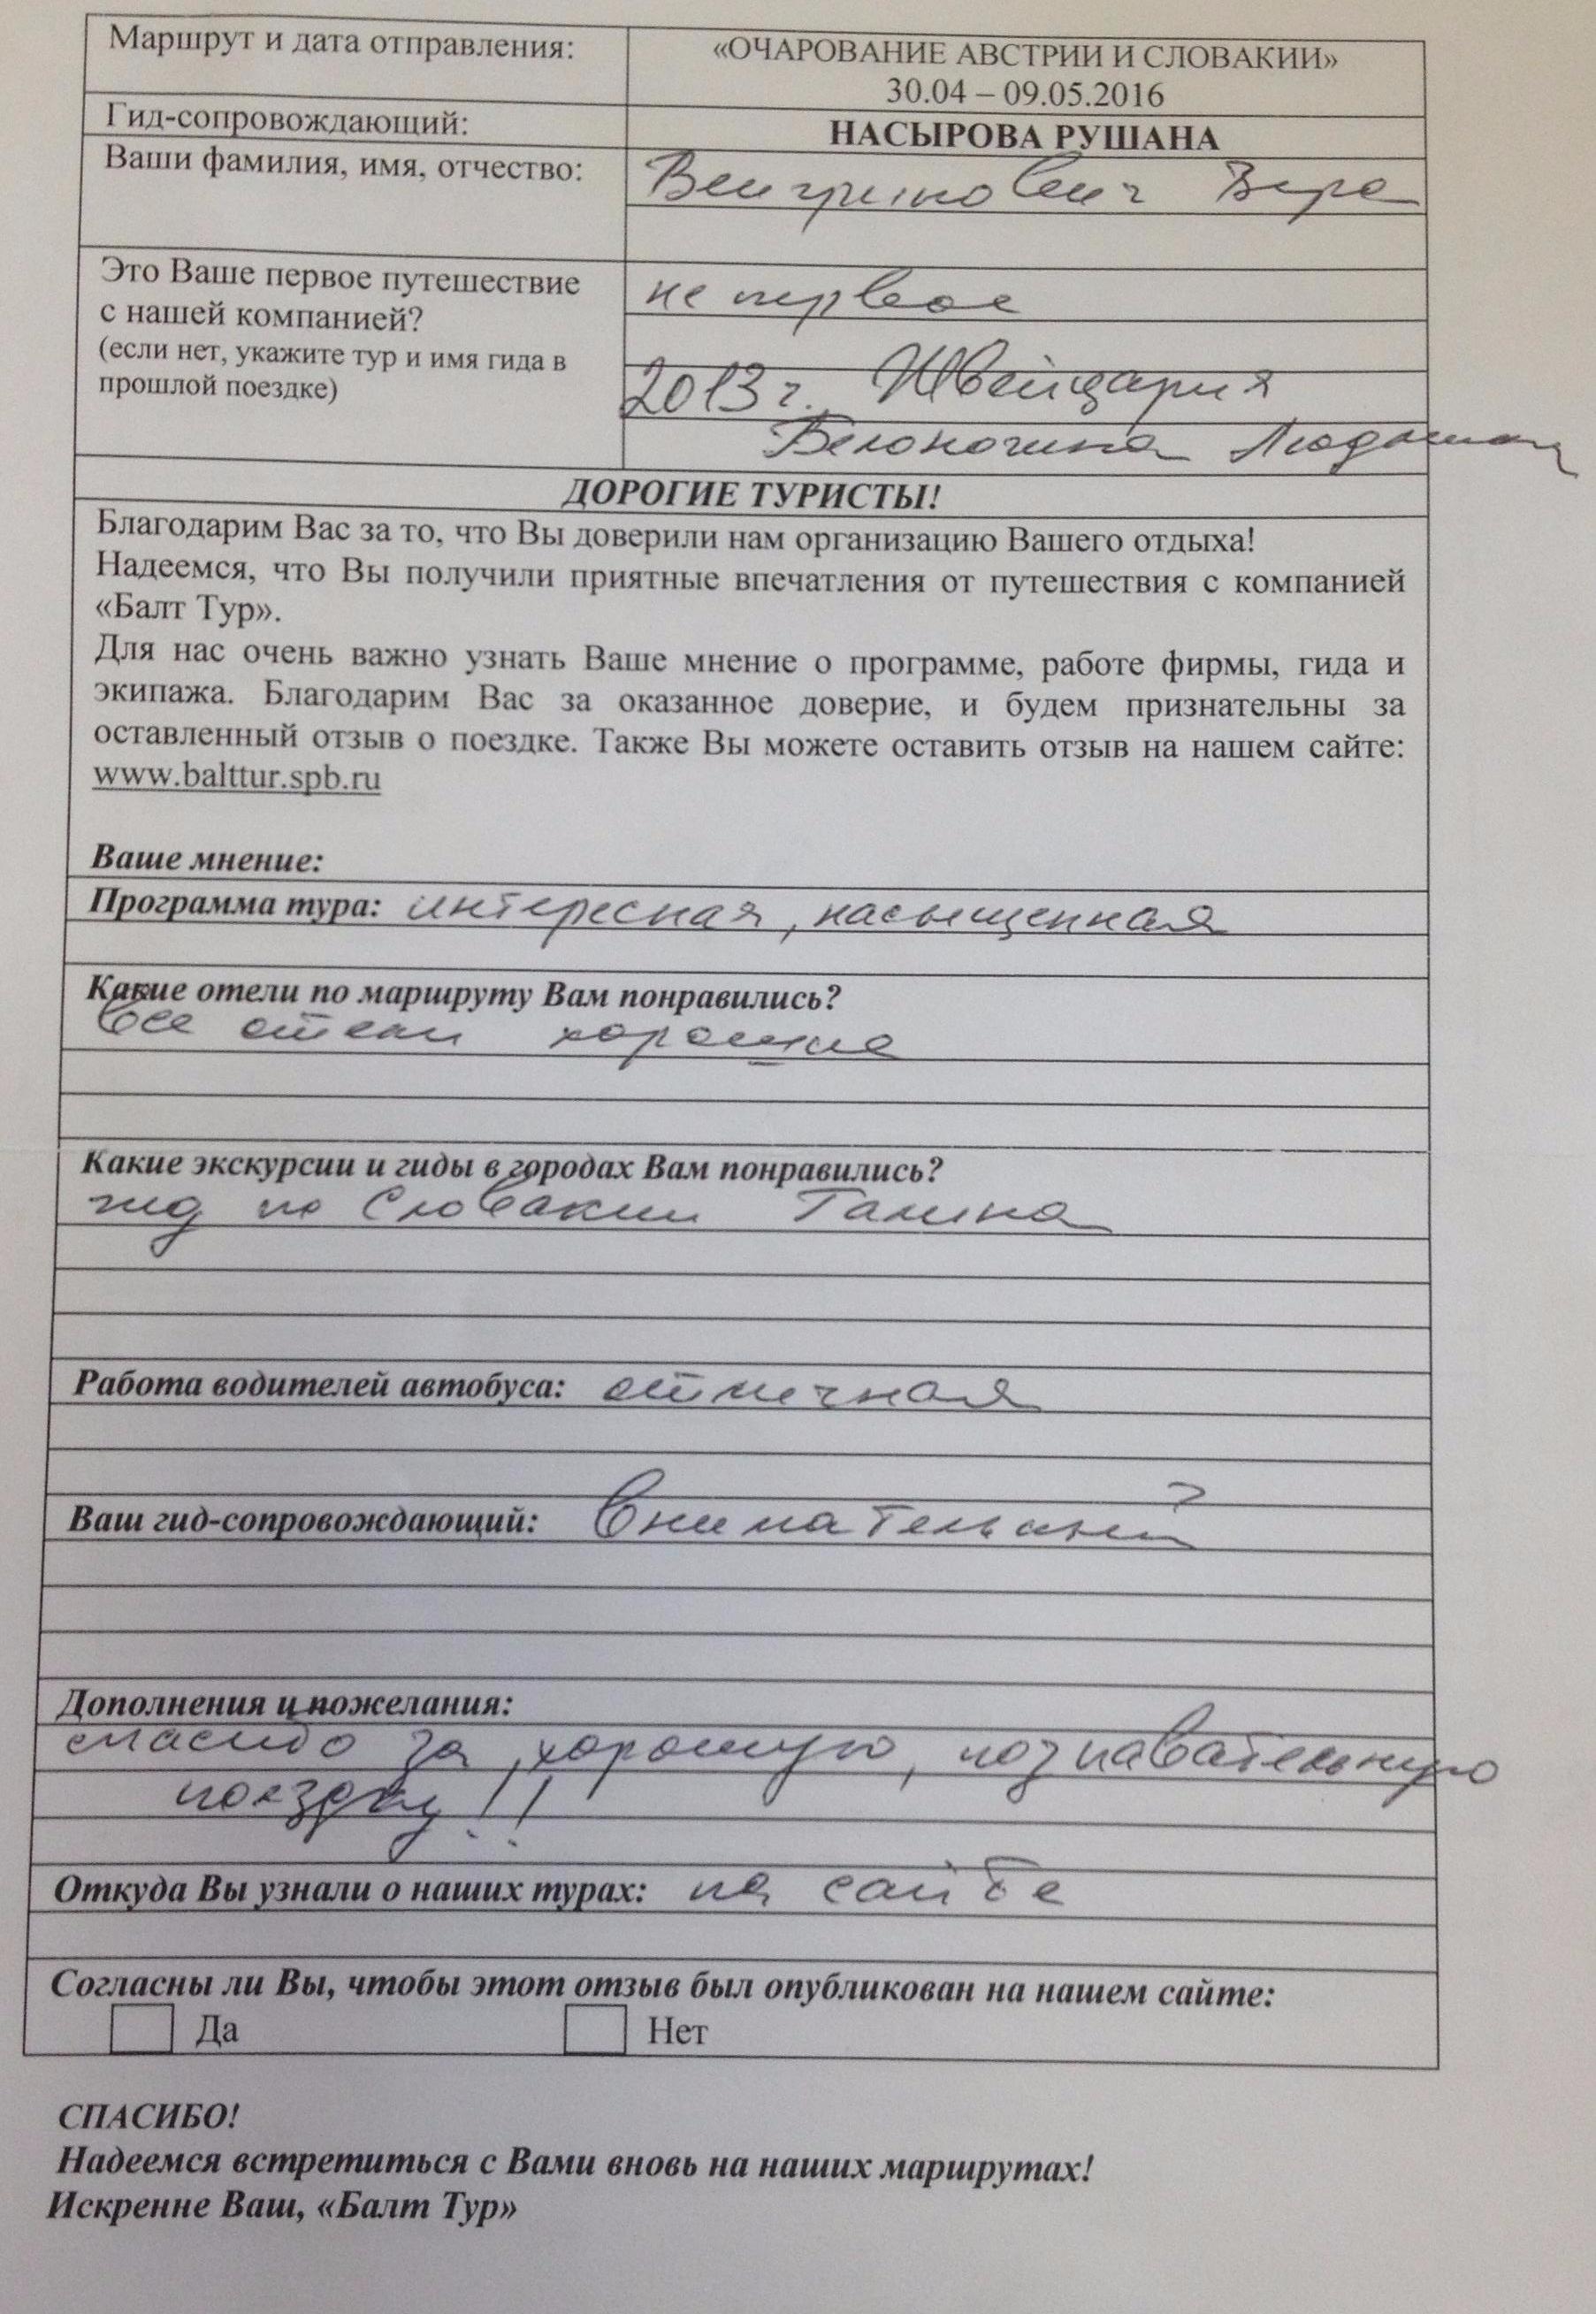 Маршрут и дата отправления:
«ОЧАРОВАНИЕ АВСТРИИ И СЛОВАКИИ»
30.04 – 09.05.2016
Гид-сопровождающий:
НАСЫРОВА РУШАНА
Ваши фамилия, имя, отчество:
Вера
Это Ваше первое путешествие
с нашей компанией?
(если нет, укажите тур и имя гида в
прошлой поездке)
не первое
2013 г. Швейцария
Людмила
ДОРОГИЕ ТУРИСТЫ!
Благодарим Вас за то, что Вы доверили нам организацию Вашего отдыха!
Надеемся, что Вы получили приятные впечатления от путешествия с компанией
«Балт Тур».
Для нас очень важно узнать Ваше мнение о программе, работе фирмы, гида и
экипажа. Благодарим Вас за оказанное доверие, и будем признательны за
оставленный отзыв о поездке. Также Вы можете оставить отзыв на нашем сайте:
www.balttur.spb.ru
Ваше мнение:
Программа тура: интересная, насыщенная
Какие отели по маршруту Вам понравились?
все отели хорошие
Какие экскурсии и гиды в городах Вам понравились?
гид по Словакии Галина
Работа водителей автобуса: отличная
Ваш гид-сопровождающий: внимательный
Дополнения и пожелания:
спасибо за хорошую, познавательную
поездку!!
Откуда Вы узнали о наших турах: на сайте
Согласны ли Вы, чтобы этот отзыв был опубликован на нашем сайте:
Да Нет
СПАСИБО!
Надеемся встретиться с Вами вновь на наших маршрутах!
Искренне Ваш, «Балт Тур»